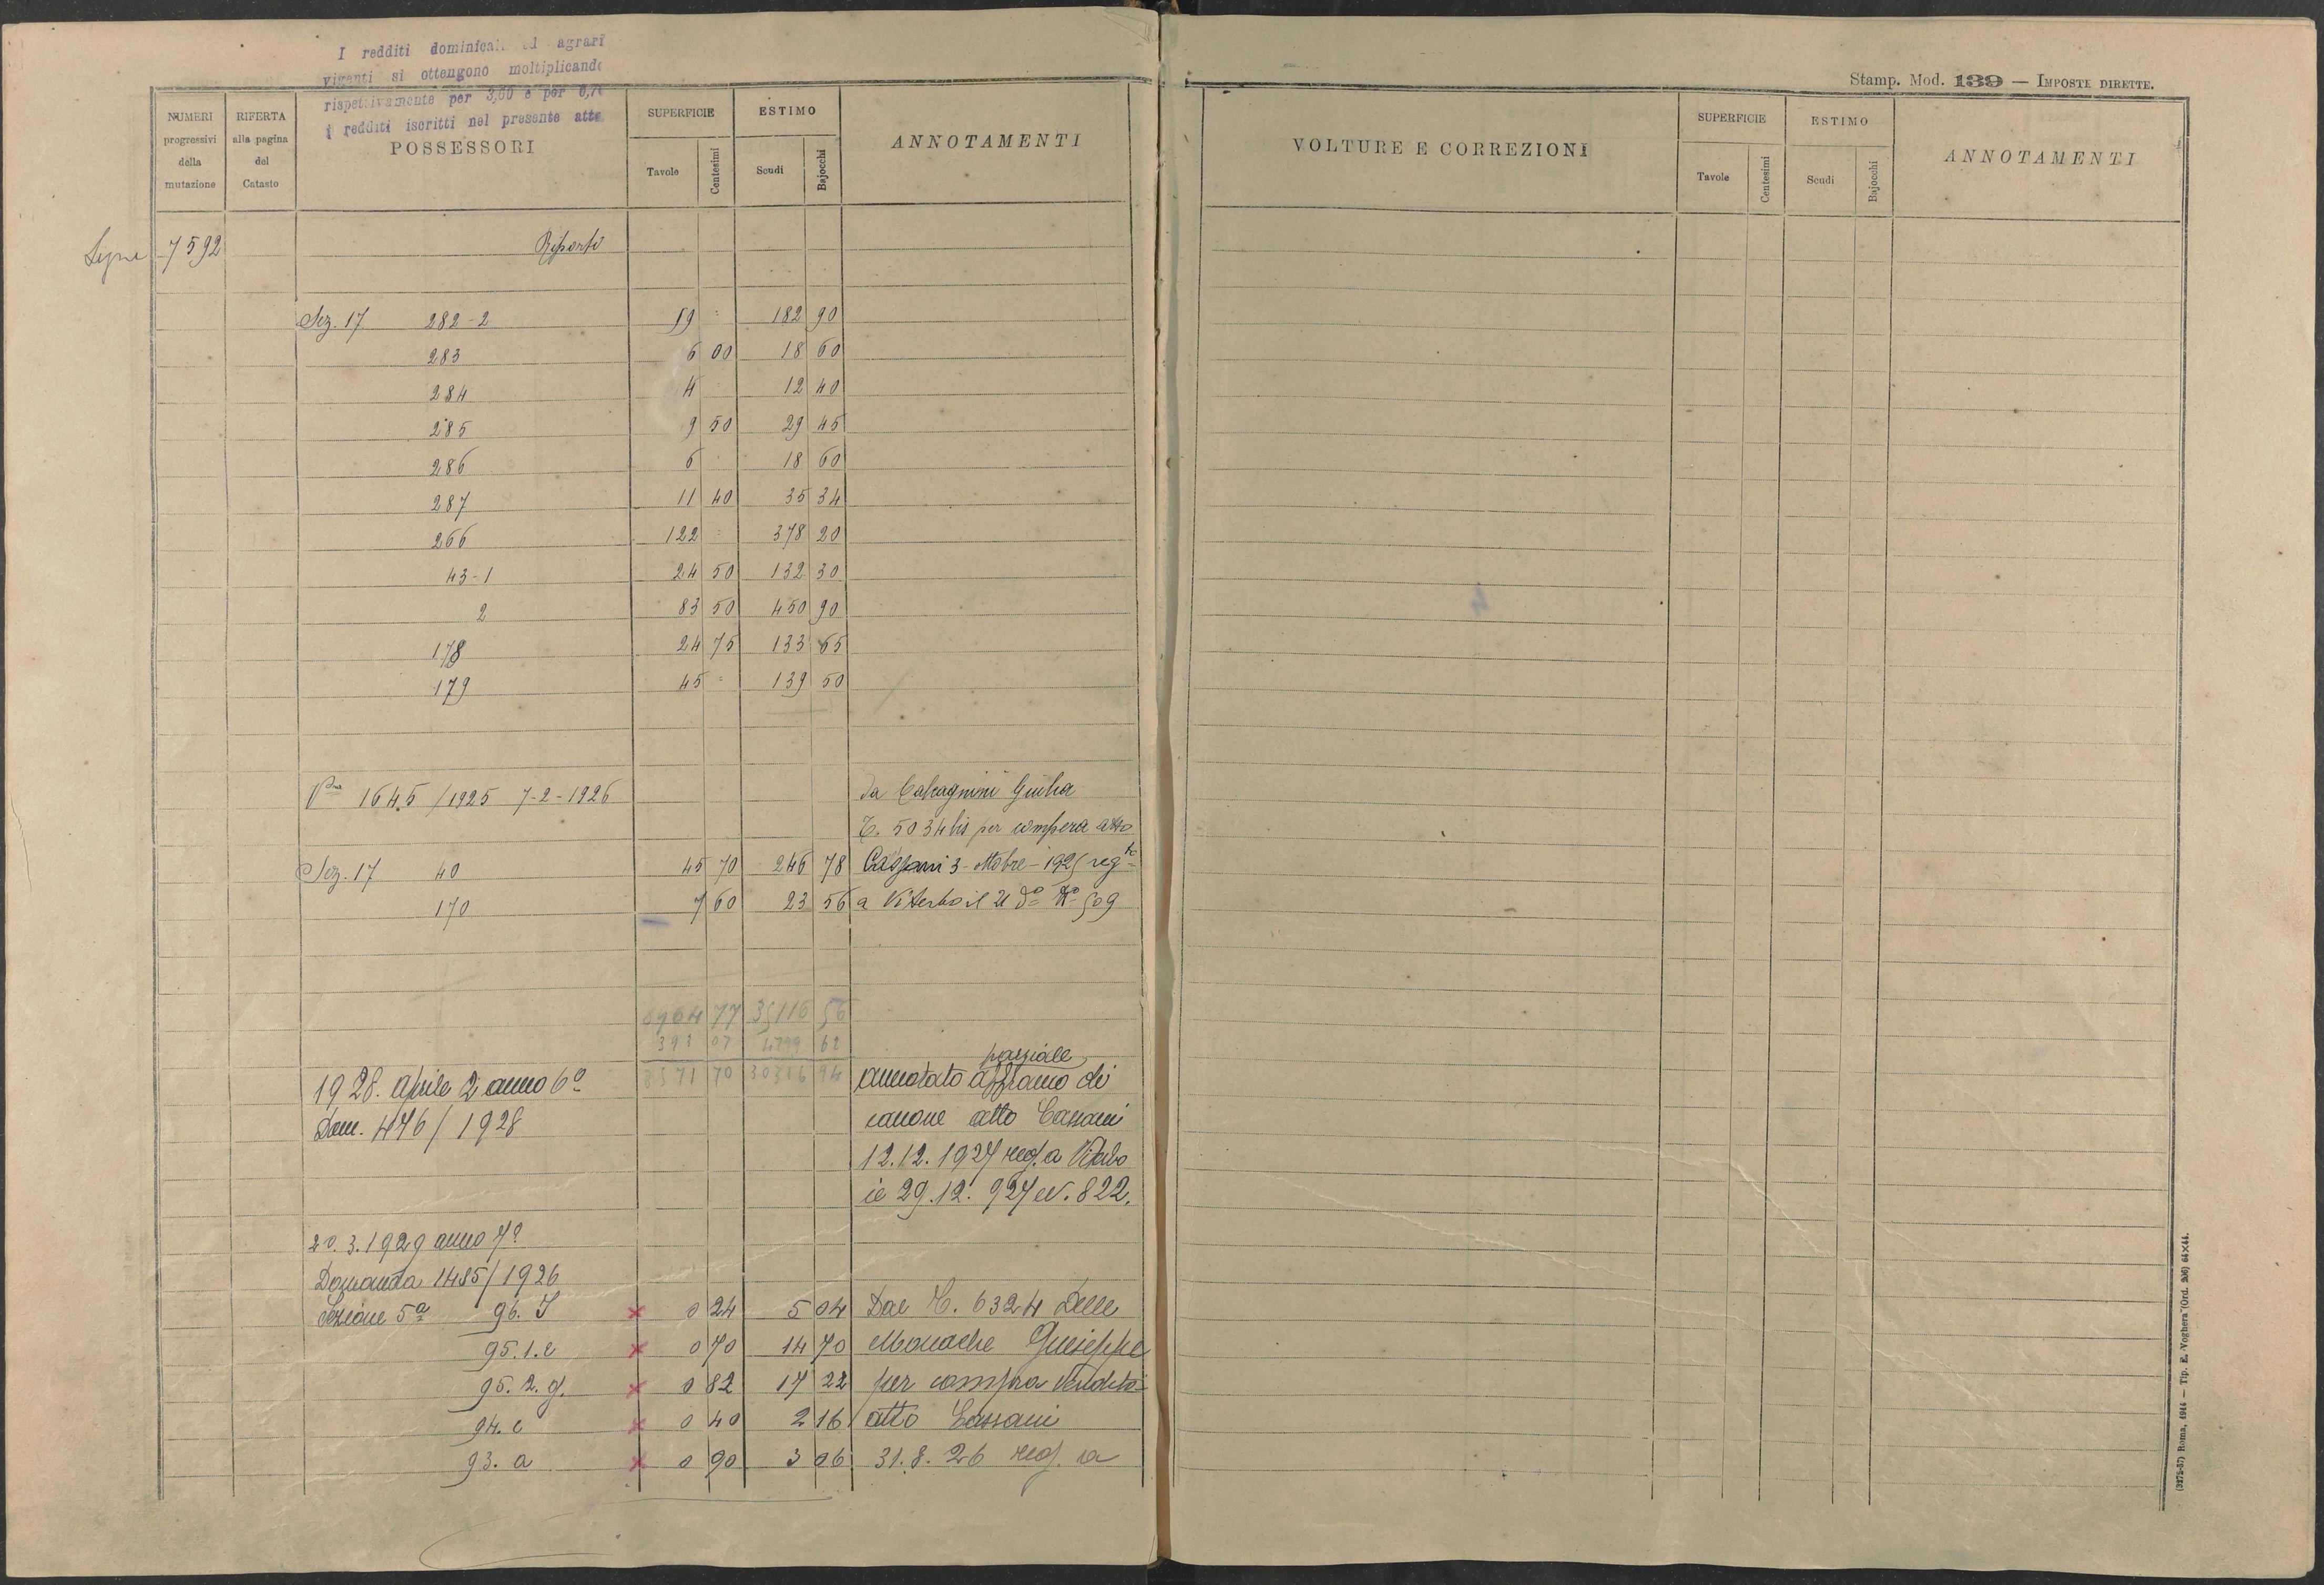 I redditi dominicali ed agrari
vigenti si ottengono moltiplicando
rispettivamente per 3,60 e per 0,70
i redditi iscritti nel presente atto
Stamp. Mod. 139 — IMPOSTE DIRETTE.
NUMERI progressivi della mutazione
RIFERTA alla pagina del Catasto
POSSESSORI
SUPERFICIE
Tavole Centesimi
ESTIMO
Scudi Bajocchi
ANNOTAMENTI
VOLTURE E CORREZIONI
SUPERFICIE
Tavole Centesimi
ESTIMO
Scudi Bajocchi
ANNOTAMENTI
7592 Riporto
Sez. 17 282-2 59 = 182 90
283 6 00 18 60
284 4 12 40
285 9 50 29 45
286 6 18 60
287 11 40 35 34
266 122 = 378 20
43-1 24 50 132 30
2 83 50 450 90
178 24 75 133 65
179 45 = 139 50
1645/1925 7-2-1926 Da Calcagnini Giulia
5034 bis per compera atto
Sez. 17 40 45 70 246 78 3-ottobre-1925 regto
170 7 60 23 56 a Viterbo il 21 do No 509
77 35116 56
07 4799 62
70 94
parziale
1928. Aprile 2 anno 6o annotato affranco di
Dom. 476/1928 canone atto Cassani
12.12.1927 reg. a Viterbo
il 29.12.927 N. 822.
20.3.1929 anno 7o
Domanda 1485/1926
Sezione 5a 96. I x 0 24 5 04 Dal 6324 Delle
95.1.e x 0 70 14 70 Monache Giuseppe
95.2.g. x 0 82 17 22 per compra vendita
94.c x 0 40 2 16 atto Cassani
93.a x 0 90 3 06 31.8.26 reg. a
(3272-57) Roma, 1914 — Tip. E. Voghera (Ord. 206) 64×44.